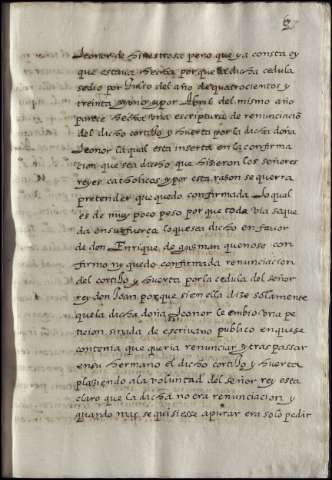 62
Leonor de hinestrosa pero que ya consta oy
que estava hecha porque la dicha cedula
se dio por Julio del año de quatrocientos y
treinta y uno y por Abril del mismo año
parece hecha una escriptura de renunciació
del dicho cortijo y huerta por la dicha doña
Leonor la qual esta inserta en la confirma
cion que sea dicho que hisieron los señores
reyes catholicos y por esta rason se querra
pretender que quedo confirmada lo qual
es de muy poco peso por que toda via se que
da en su fuerca lo que sea dicho en favor
de don Enrique de gusman que no se con
firmo ny quedo confirmada renunciacion
del cortijo y huerta por la cedula del señor
rey don Joan porque si en ella dise solamente
que la dicha doña Leonor le embio una pe
ticion signada de escrivano publico en que se
contenia que queria renunciar y traspassar
en su hermano el dicho cortijo y huerta
plasiendo a la voluntad del señor rey esta
claro que la dicha no era renunciacion y
quando mas se quisiesse apurar era solo pedir